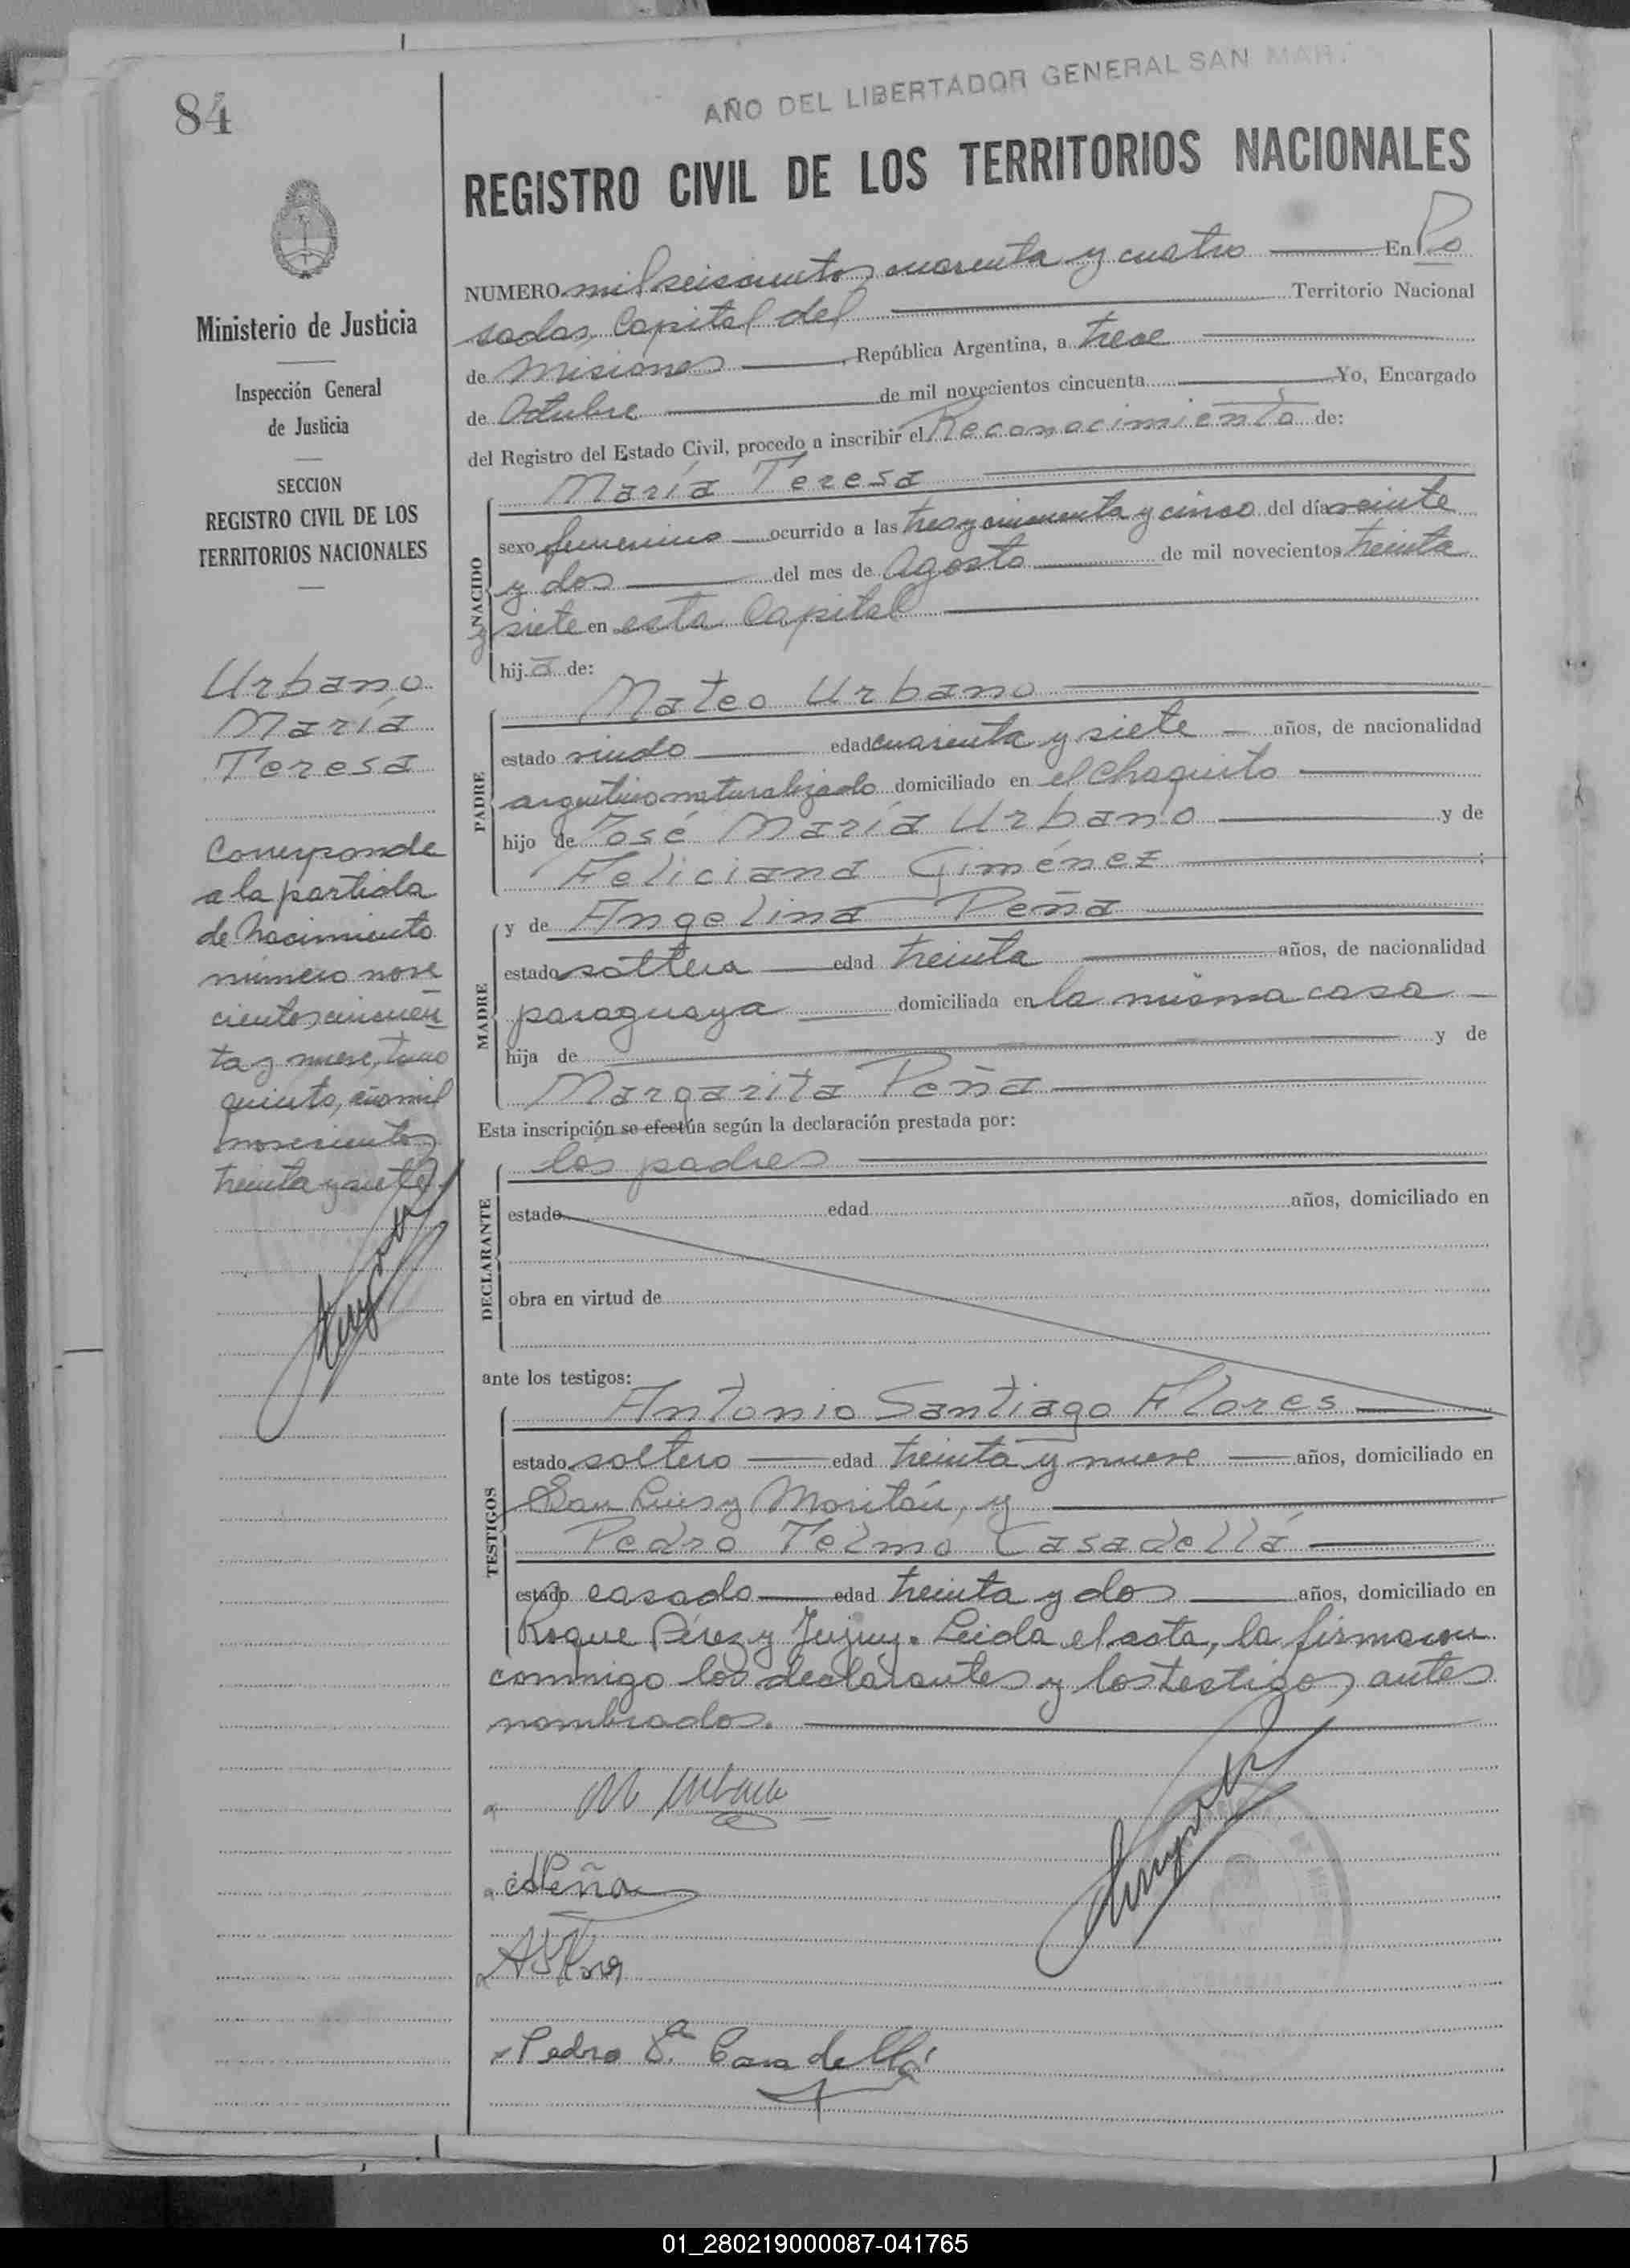 84
AÑO DEL LIBERTADOR GENERAL SAN MAR
REGISTRO CIVIL DE LOS TERRITORIOS NACIONALES
Ministerio de Justicia
Inspección General
de Justicia
SECCION
REGISTRO CIVIL DE LOS
TERRITORIOS NACIONALES
Urbano
María
Teresa
Corresponde
a la partida
de Nacimiento
número nove
cientos cincuen
ta y nueve, tomo
quinto, año mil
novecientos
treinta y siete.
NUMERO mil seiscientos cuarenta y cuatro En Po
sadas, Capital del Territorio Nacional
de Misiones, República Argentina, a trece
de Octubre de mil novecientos cincuenta Yo, Encargado
del Registro del Estado Civil, procedo a inscribir el Reconocimiento de:
NACIDO
María Teresa
sexo femenino ocurrido a las tres y cincuenta y cinco del día veinte
y dos del mes de Agosto de mil novecientos treinta
y siete en esta Capital
hija de:
PADRE
Mateo Urbano
estado viudo edad cuarenta y siete años, de nacionalidad
argentino naturalizado domiciliado en el Chaquito
hijo de José María Urbano y de
Feliciana Giménez
MADRE
y de Angelina Peña
estado soltera edad treinta años, de nacionalidad
paraguaya domiciliada en la misma casa
hija de y de
Margarita Peña
Esta inscripción se efectúa según la declaración prestada por:
DECLARANTE
los padres
estado edad años, domiciliado en
obra en virtud de
ante los testigos:
TESTIGOS
Antonio Santiago Flores
estado soltero edad treinta y nueve años, domiciliado en
San Luis y Moritán, y
Pedro Telmo Casadellá
estado casado edad treinta y dos años, domiciliado en
Roque Pérez y Jujuy. Leida el acta, la firmaron
conmigo los declarantes y los testigos antes
nombrados.
M Urbano
Peña
Pedro Casadellá
01_280219000087-041765